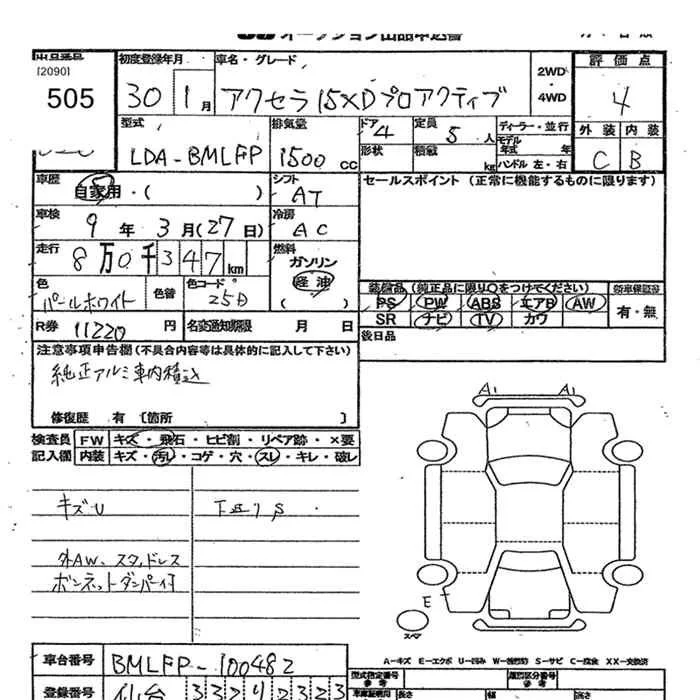 オークション出品申込書
出品番号
[2090]
505
初度登録年月
30 1月
車名・グレード
アクセラ 15XDプロアクティブ
2WD
4WD
評価点
4
外装 内装
C B
型式
LDA-BMLFP
排気量
1500 cc
ドア 4
形状
定員 5 人
積載 kg
ディーラー・並行
モデル年式 年
ハンドル 左・右
車歴
自家用・( )
シフト
AT
セールスポイント (正常に機能するものに限ります)
車検
9 年 3 月(27日)
冷房
AC
走行
8万0千347km
燃料
ガソリン
軽油
( )
色
パールホワイト
色替
色コード
25D
装備品(純正品に限り○をつけてください)
PS PW ABS エアB AW
SR ナビ TV カワ
新車保証書
有・無
R券 11220 円
名変通知期限 月 日
後日品
注意事項申告欄(不具合内容等は具体的に記入して下さい)
純正アルミ車内積込
修復歴 有 [箇所 ]
検査員記入欄
FW キズ・飛石・ヒビ割・リペア跡・×要
内装 キズ・汚れ・コゲ・穴・スレ・キレ・破レ
キズU
外AW、スタッドレス
ボンネットダンパー付
A1 A1
E
スペア
A-キズ E-エクボ U-凹み W-波板 S-サビ C-腐食 XX-交換済
車台番号 BMLFP-100482
型式指定番号
類別区分番号
登録番号 仙台 332
長さ 幅 高さ